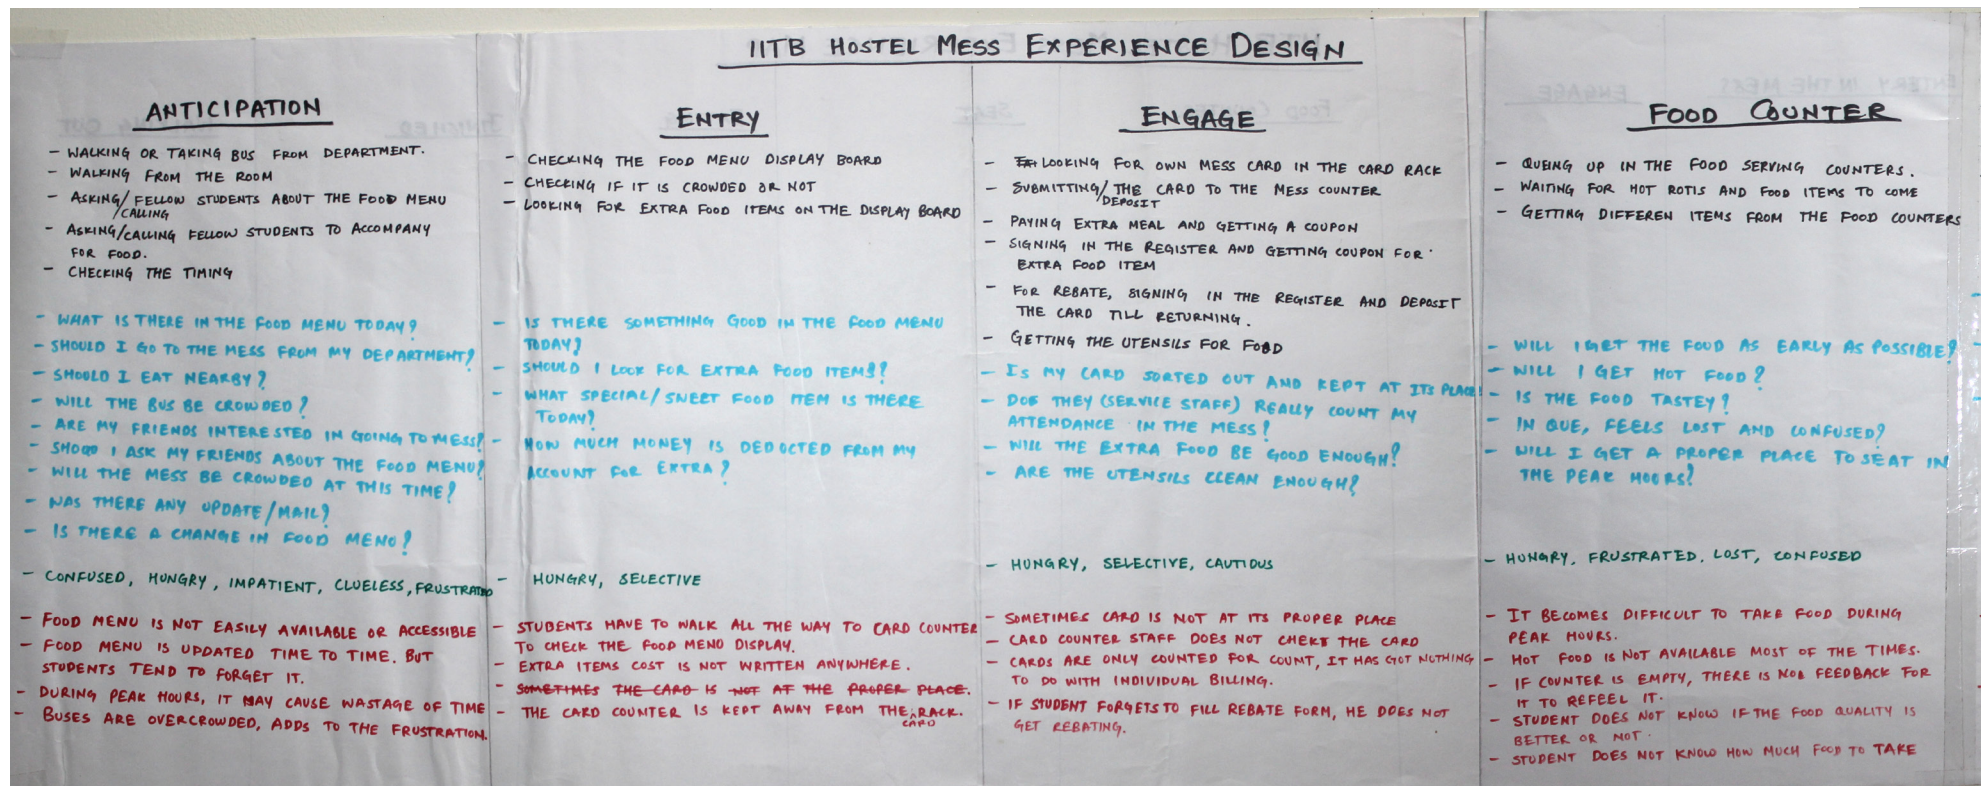 IITB HOSTEL MESS EXPERIENCE DESIGN
ANTICIPATION
- WALKING OR TAKING BUS FROM DEPARTMENT.
- WALKING FROM THE ROOM
- ASKING/ FELLOW STUDENTS ABOUT THE FOOD MENU
/CALLING
- ASKING/CALLING FELLOW STUDENTS TO ACCOMPANY
FOR FOOD.
- CHECKING THE TIMING
- WHAT IS THERE IN THE FOOD MENU TODAY?
- SHOULD I GO TO THE MESS FROM MY DEPARTMENT?
- SHOULD I EAT NEARBY?
- WILL THE BUS BE CROWDED?
- ARE MY FRIENDS INTERESTED IN GOING TO MESS?
- SHOULD I ASK MY FRIENDS ABOUT THE FOOD MENU?
- WILL THE MESS BE CROWDED AT THIS TIME?
- WAS THERE ANY UPDATE/MAIL?
- IS THERE A CHANGE IN FOOD MENU?
- CONFUSED, HUNGRY, IMPATIENT, CLUELESS, FRUSTRATED
- FOOD MENU IS NOT EASILY AVAILABLE OR ACCESSIBLE
- FOOD MENU IS UPDATED TIME TO TIME. BUT
STUDENTS TEND TO FORGET IT.
- DURING PEAK HOURS, IT MAY CAUSE WASTAGE OF TIME
- BUSES ARE OVERCROWDED, ADDS TO THE FRUSTRATION.
ENTRY
- CHECKING THE FOOD MENU DISPLAY BOARD
- CHECKING IF IT IS CROWDED OR NOT
- LOOKING FOR EXTRA FOOD ITEMS ON THE DISPLAY BOARD
- IS THERE SOMETHING GOOD IN THE FOOD MENU
TODAY?
- SHOULD I LOOK FOR EXTRA FOOD ITEMS?
- WHAT SPECIAL/SWEET FOOD ITEM IS THERE
TODAY?
- HOW MUCH MONEY IS DEDUCTED FROM MY
ACCOUNT FOR EXTRA?
- HUNGRY, SELECTIVE
- STUBENTS HAVE TO WALK ALL THE WAY TO CARD COUNTER
TO CHECK THE FOOD MENU DISPLAY.
- EXTRA ITEMS COST IS NOT WRITTEN ANYWHERE.
- SOMETIMES THE CARD IS NOT AT THE PROPER PLACE.
- THE CARD COUNTER IS KEPT AWAY FROM THE RACK.
CARD
ENGAGE
- LOOKING FOR OWN MESS CARD IN THE CARD RACK
- SUBMITTING/ THE CARD TO THE MESS COUNTER
/DEPOSIT
- PAYING EXTRA MEAL AND GETTING A COUPON
- SIGNING IN THE REGISTER AND GETTING COUPON FOR
EXTRA FOOD ITEM
- FOR REBATE, SIGNING IN THE REGISTER AND DEPOSIT
THE CARD TILL RETURNING.
- GETTING THE UTENSILS FOR FOOD
- IS MY CARD SORTED OUT AND KEPT AT ITS PLACE
- DOE THEY (SERVICE STAFF) REALLY COUNT MY
ATTENDANCE IN THE MESS?
- WILL THE EXTRA FOOD BE GOOD ENOUGH?
- ARE THE UTENSILS CLEAN ENOUGH?
- HUNGRY, SELECTIVE, CAUTIOUS
- SOMETIMES CARD IS NOT AT ITS PROPER PLACE
- CARD COUNTER STAFF DOES NOT CHEKT THE CARD
- CARDS ARE ONLY COUNTED FOR COUNT, IT HAS GOT NOTHING
TO DO WITH INDIVIDUAL BILLING.
- IF STUDENT FORGETS TO FILL REBATE FORM, HE DOES NOT
GET REBATING.
FOOD COUNTER
- QUEING UP IN THE FOOD SERVING COUNTERS.
- WAITING FOR HOT ROTIS AND FOOD ITEMS TO COME
- GETTING DIFFEREN ITEMS FROM THE FOOD COUNTERS
- WILL I GET THE FOOD AS EARLY AS POSSIBLE?
- WILL I GET HOT FOOD?
- IS THE FOOD TASTEY?
- IN QUE, FEELS LOST AND CONFUSED?
- WILL I GET A PROPER PLACE TO SEAT IN
THE PEAK HOURS?
- HUNGRY, FRUSTRATED, LOST, CONFUSED
- IT BECOMES DIFFICULT TO TAKE FOOD DURING
PEAK HOURS.
- HOT FOOD IS NOT AVAILABLE MOST OF THE TIMES.
- IF COUNTER IS EMPTY, THERE IS NO FEEDBACK FOR
IT TO REFEEL IT.
- STUDENT DOES NOT KNOW IF THE FOOD QUALITY IS
BETTER OR NOT.
- STUDENT DOES NOT KNOW HOW MUCH FOOD TO TAKE